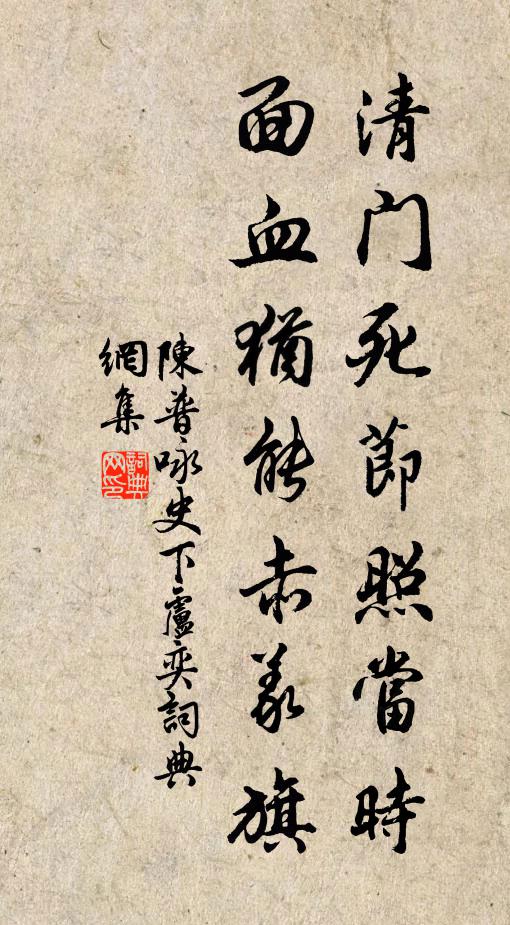 清门死節照當時
面血猶能赤義旗
陳普咏史下盧奕詞典
網集
詞典網印